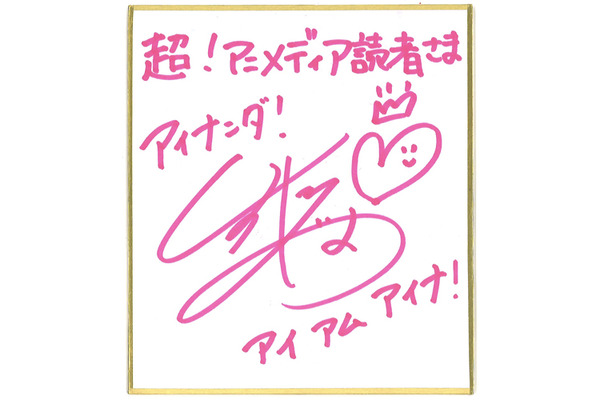 超！アニメディア読者さま
アイナンダ！
アイ アム アイナ！